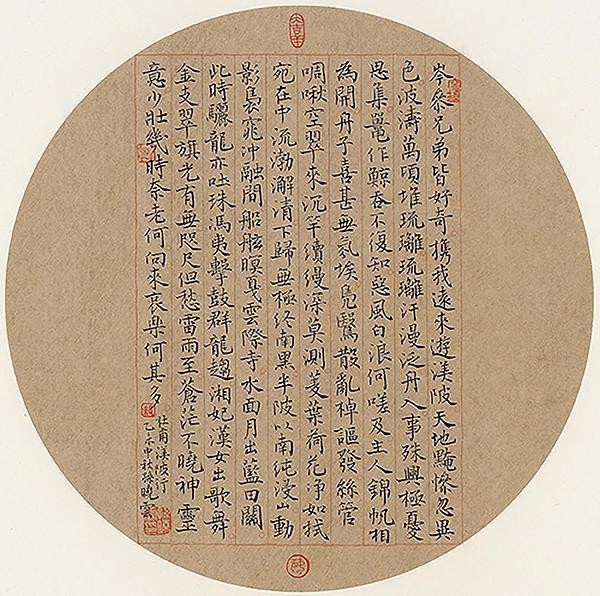 岑參兄弟皆好奇携我遠來遊渼陂天地黤慘忽異
色波濤萬頃堆琉璃琉璃汗漫泛舟入事殊興極憂
思集鼉作鯨吞不復知惡風白浪何嗟及主人錦帆相
為開舟子喜甚無氛埃鳧鷖散亂棹謳發絲管
啁啾空翠來沉竿續縵深莫測菱葉荷花淨如拭
宛在中流渤澥清下歸無極終南黑半陂以南純浸山動
影裊窕沖融間船舷暝戛雲際寺水面月出藍田關
此時驪龍亦吐珠馮夷擊鼓群龍趨湘妃漢女出歌舞
金支翠旗光有無咫尺但愁雷雨至蒼茫不曉神靈
意少壯幾時奈老何向來哀樂何其多
杜甫渼陂行
乙未中秋孫曉雲